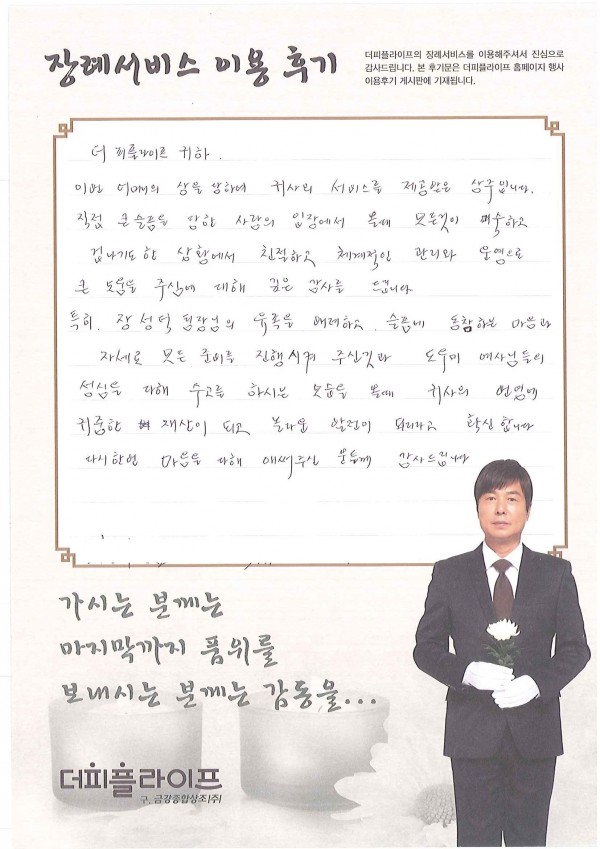 장례서비스 이용 후기
더피플라이프의 장례서비스를 이용해주셔서 진심으로
감사드립니다. 본 후기문은 더피플라이프 홈페이지 행사
이용후기 게시판에 기재됩니다.
더 피플라이프 귀하.
이번 어머니의 상을 당하여 귀사의 서비스를 제공받은 상주입니다.
직접 큰 슬픔을 당한 사람의 입장에서 볼때 모든것이 미숙하고
겁나기도 한 상황에서 친절하고 체계적인 관리와 운영으로
큰 도움을 주심에 대해 깊은 감사를 드립니다
특히. 장성덕 팀장님의 유족을 배려하고. 슬픔에 동참하는 마음과
자세로 모든 준비를 진행시켜 주신것과 도우미 여사님들의
성심을 다해 수고를 하시는 모습을 볼때 귀사의 번영에
귀중한 재산이 되고 놀라운 발전이 되리라고 확신합니다
다시한번 마음을 다해 애써주신 분들께 감사드립니다
가시는 분께는
마지막까지 품위를
보내시는 분께는 감동을...
더피플라이프
구. 금강종합상조(주)